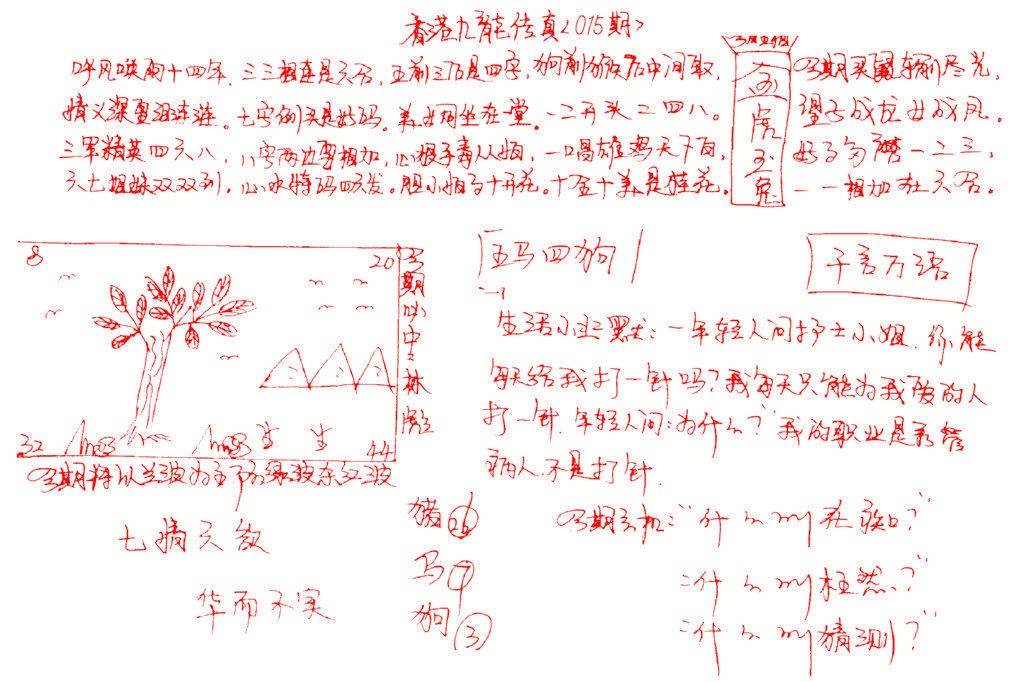 香港九龙传真<015期>
呼风唤雨十四年.三三相连是六合,五前三后是四字,狗前猴后中间取,
情义深重泪涟涟.七字例头是好码.美女同坐在一堂.一二开头二四八。
三军精英四六八,八字两边要相加,心狠手毒人人怕,一唱雄鸡天下白,
六七姐妹双双到,心水特码四六发。胆小怕事十开花.十全十美是桂花。
买鼠年前尽光,
望子成龙女成凤.
一二三,
一一相加在六合。
虎
玉
兔
8
20
32
44
期必中:林
期特以兰波为主防绿波杀红波
七情六欲
华而不实
五马四狗
千言万语
生活小幽默:一年轻人问护士小姐.你能
每天给我打一针吗?我每天只能为我爱的人
打一针.年轻人问:为什么?我的职业是
病人.不是打针.
猪
马⑦
狗③
期玄机:"什么叫在?"
"什么叫枉然?"
"什么叫猜测?"